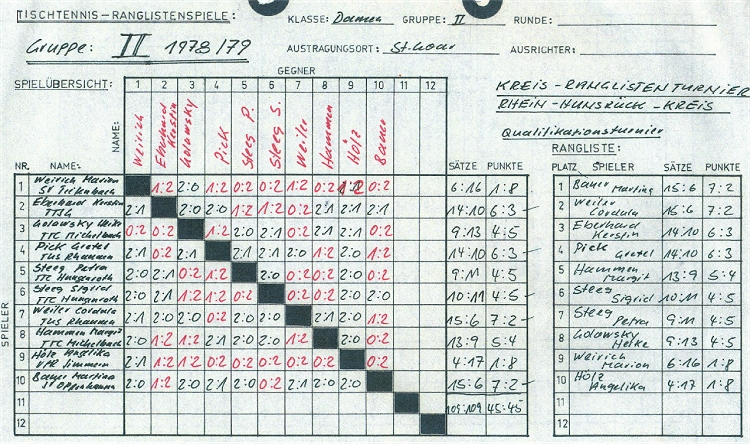 TISCHTENNIS-RANGLISTENSPIELE: KLASSE: Damen GRUPPE: II RUNDE:
Gruppe: II 1978/79 AUSTRAGUNGSORT: St. Goar AUSRICHTER:
GEGNER
SPIELÜBERSICHT: 1 2 3 4 5 6 7 8 9 10 11 12
KREIS-RANGLISTENTURNIER
RHEIN-HUNSRÜCK-KREIS
Qualifikationsturnier
NAME: Weirich Eberhard Kerstin Golowsky Pick Steeg P. Steeg S. Weiler Hammen Hölz Bauer
RANGLISTE:
NR. NAME: SÄTZE PUNKTE PLATZ SPIELER SÄTZE PUNKTE
SPIELER
1 Weirich Marion SV Tiefenbach 1:2 2:0 1:2 0:2 0:2 1:2 0:2 0:2 6:16 1:8
2 Eberhard Kerstin TTSG 2:1 2:0 2:0 1:2 1:2 0:2 2:1 2:1 2:1 14:10 6:3
3 Golowsky Heike TTC Michelbach 0:2 0:2 1:2 2:0 2:1 0:2 2:1 2:1 0:2 9:13 4:5
4 Pick Gretel TuS Rhaunen 2:1 0:2 2:1 2:1 2:1 2:0 1:2 2:0 1:2 14:10 6:3
5 Steeg Petra TTC Hungenroth 2:0 2:1 0:2 1:2 2:0 0:2 0:2 2:0 0:2 9:11 4:5
6 Steeg Sigrid TTC Hungenroth 2:0 2:1 1:2 1:2 0:2 0:2 0:2 2:0 2:0 10:11 4:5
7 Weiler Cordula TuS Rhaunen 2:1 2:0 2:0 0:2 2:0 2:0 2:1 2:0 1:2 15:6 7:2
8 Hammen Margit TTC Michelbach 2:0 1:2 1:2 2:1 2:0 2:0 1:2 2:0 0:2 13:9 5:4
9 Hölz Angelika VfR Simmern 2:1 1:2 1:2 0:2 0:2 0:2 0:2 0:2 0:2 4:17 1:8
10 Bauer Martina 2:0 1:2 2:0 2:1 2:0 0:2 2:1 2:0 2:0 15:6 7:2
11 109:109 45:45
12
1 Bauer Martina 15:6 7:2
2 Weiler Cordula 15:6 7:2
3 Eberhard Kerstin 14:10 6:3
4 Pick Gretel 14:10 6:3
5 Hammen Margit 13:9 5:4
6 Steeg Sigrid 10:11 4:5
7 Steeg Petra 9:11 4:5
8 Golowsky Heike 9:13 4:5
9 Weirich Marion 6:16 1:8
10 Hölz Angelika 4:17 1:8
11
12